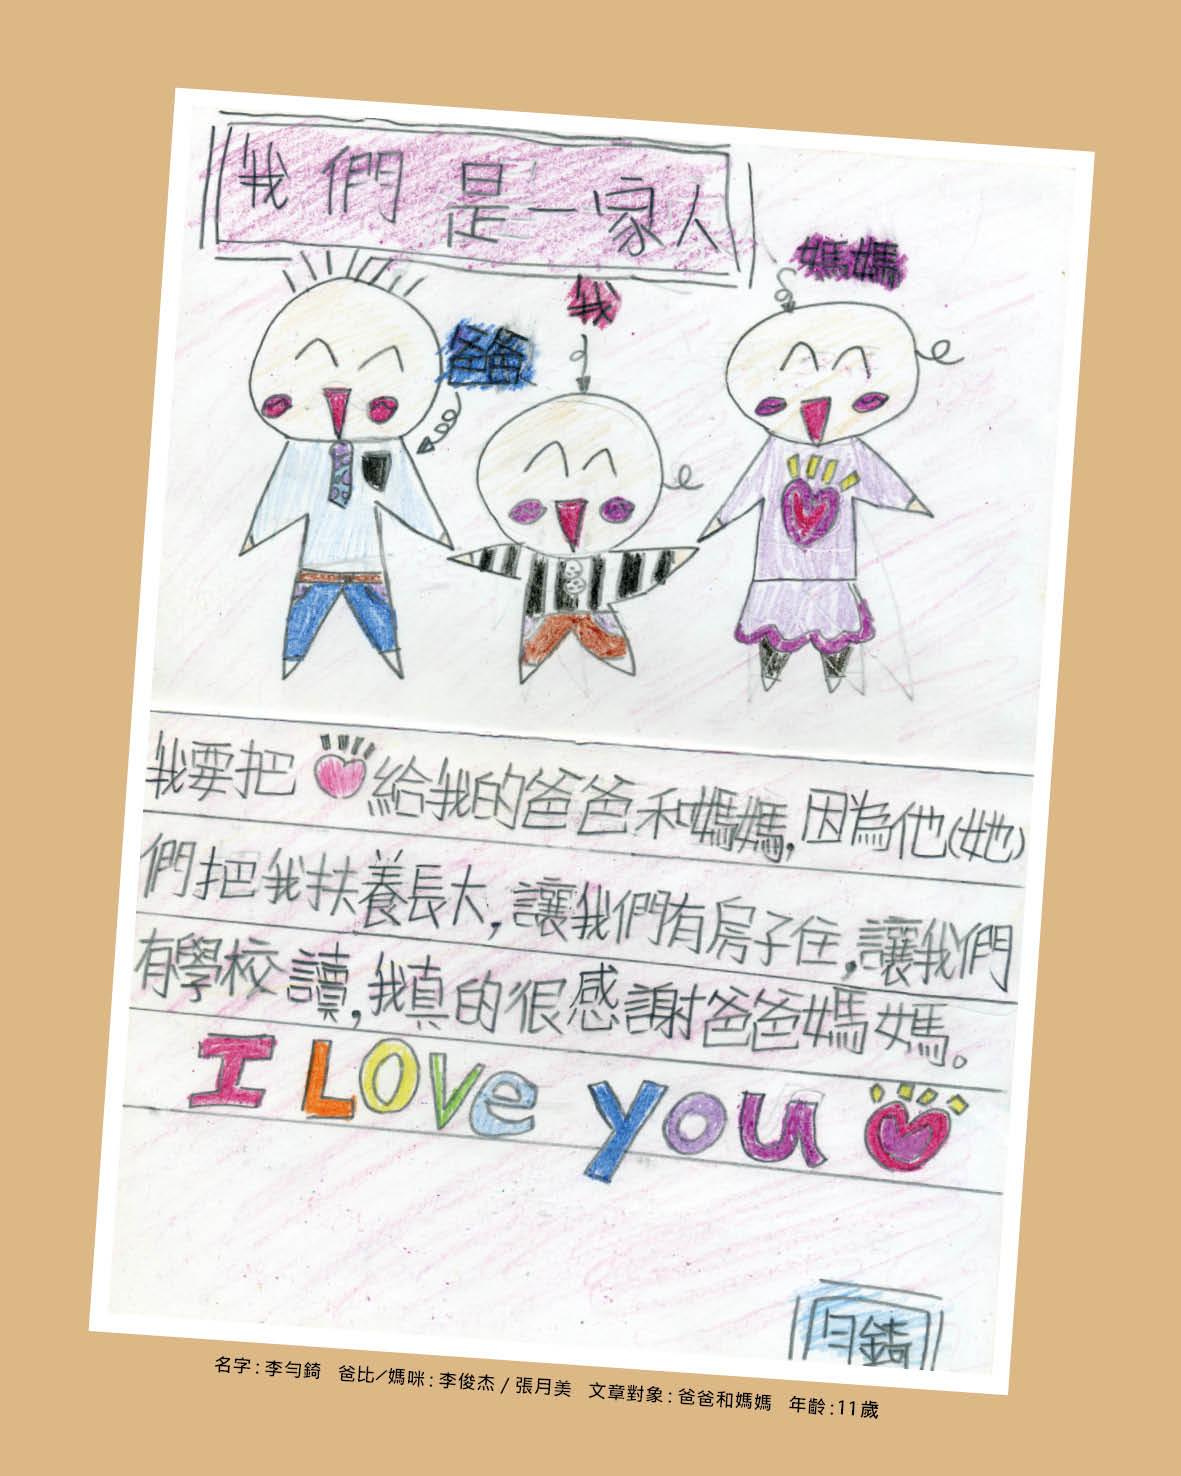 我們是一家人
媽媽
我
爸爸
我要把給我的爸爸和媽媽，因為他(她)
們把我扶養長大，讓我們有房子住，讓我們
有學校讀，我真的很感謝爸爸媽媽。
I Love you
勻錡
名字：李勻錡 爸比／媽咪：李俊杰 / 張月美 文章對象：爸爸和媽媽 年齡：11歲